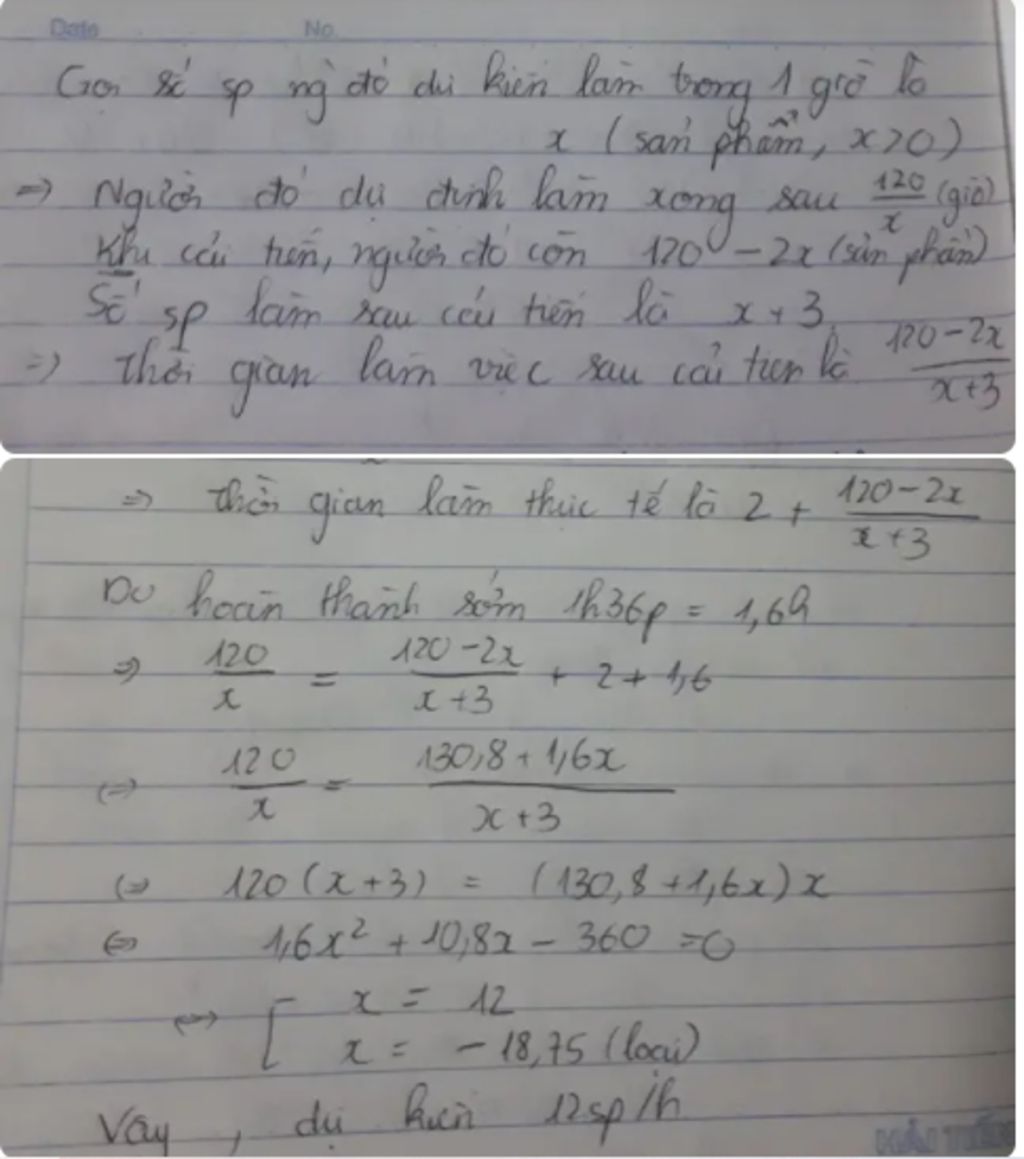 Date No.
Gọi số sp ng đó dự kiến làm trong 1 giờ là
x (sản phẩm, x>0)
=> Người đó dự định làm xong sau 120/x (giờ)
Khi cải tiến, người đó còn 120 - 2x (sản phẩm)
Số sp làm sau cải tiến là x + 3
=> thời gian làm việc sau cải tiến là (120-2x)/(x+3)
=> thời gian làm thực tế là 2 + (120-2x)/(x+3)
Do hoàn thành sớm 1h36p = 1,6h
=> 120/x = (120-2x)/(x+3) + 2 + 1,6
<=> 120/x = (130,8 + 1,6x)/(x+3)
<=> 120(x+3) = (130,8 + 1,6x)x
<=> 1,6x² + 10,8x - 360 = 0
<=> [ x = 12
x = -18,75 (loại)
Vậy, dự kiến 12sp/h
HẢI TIẾN